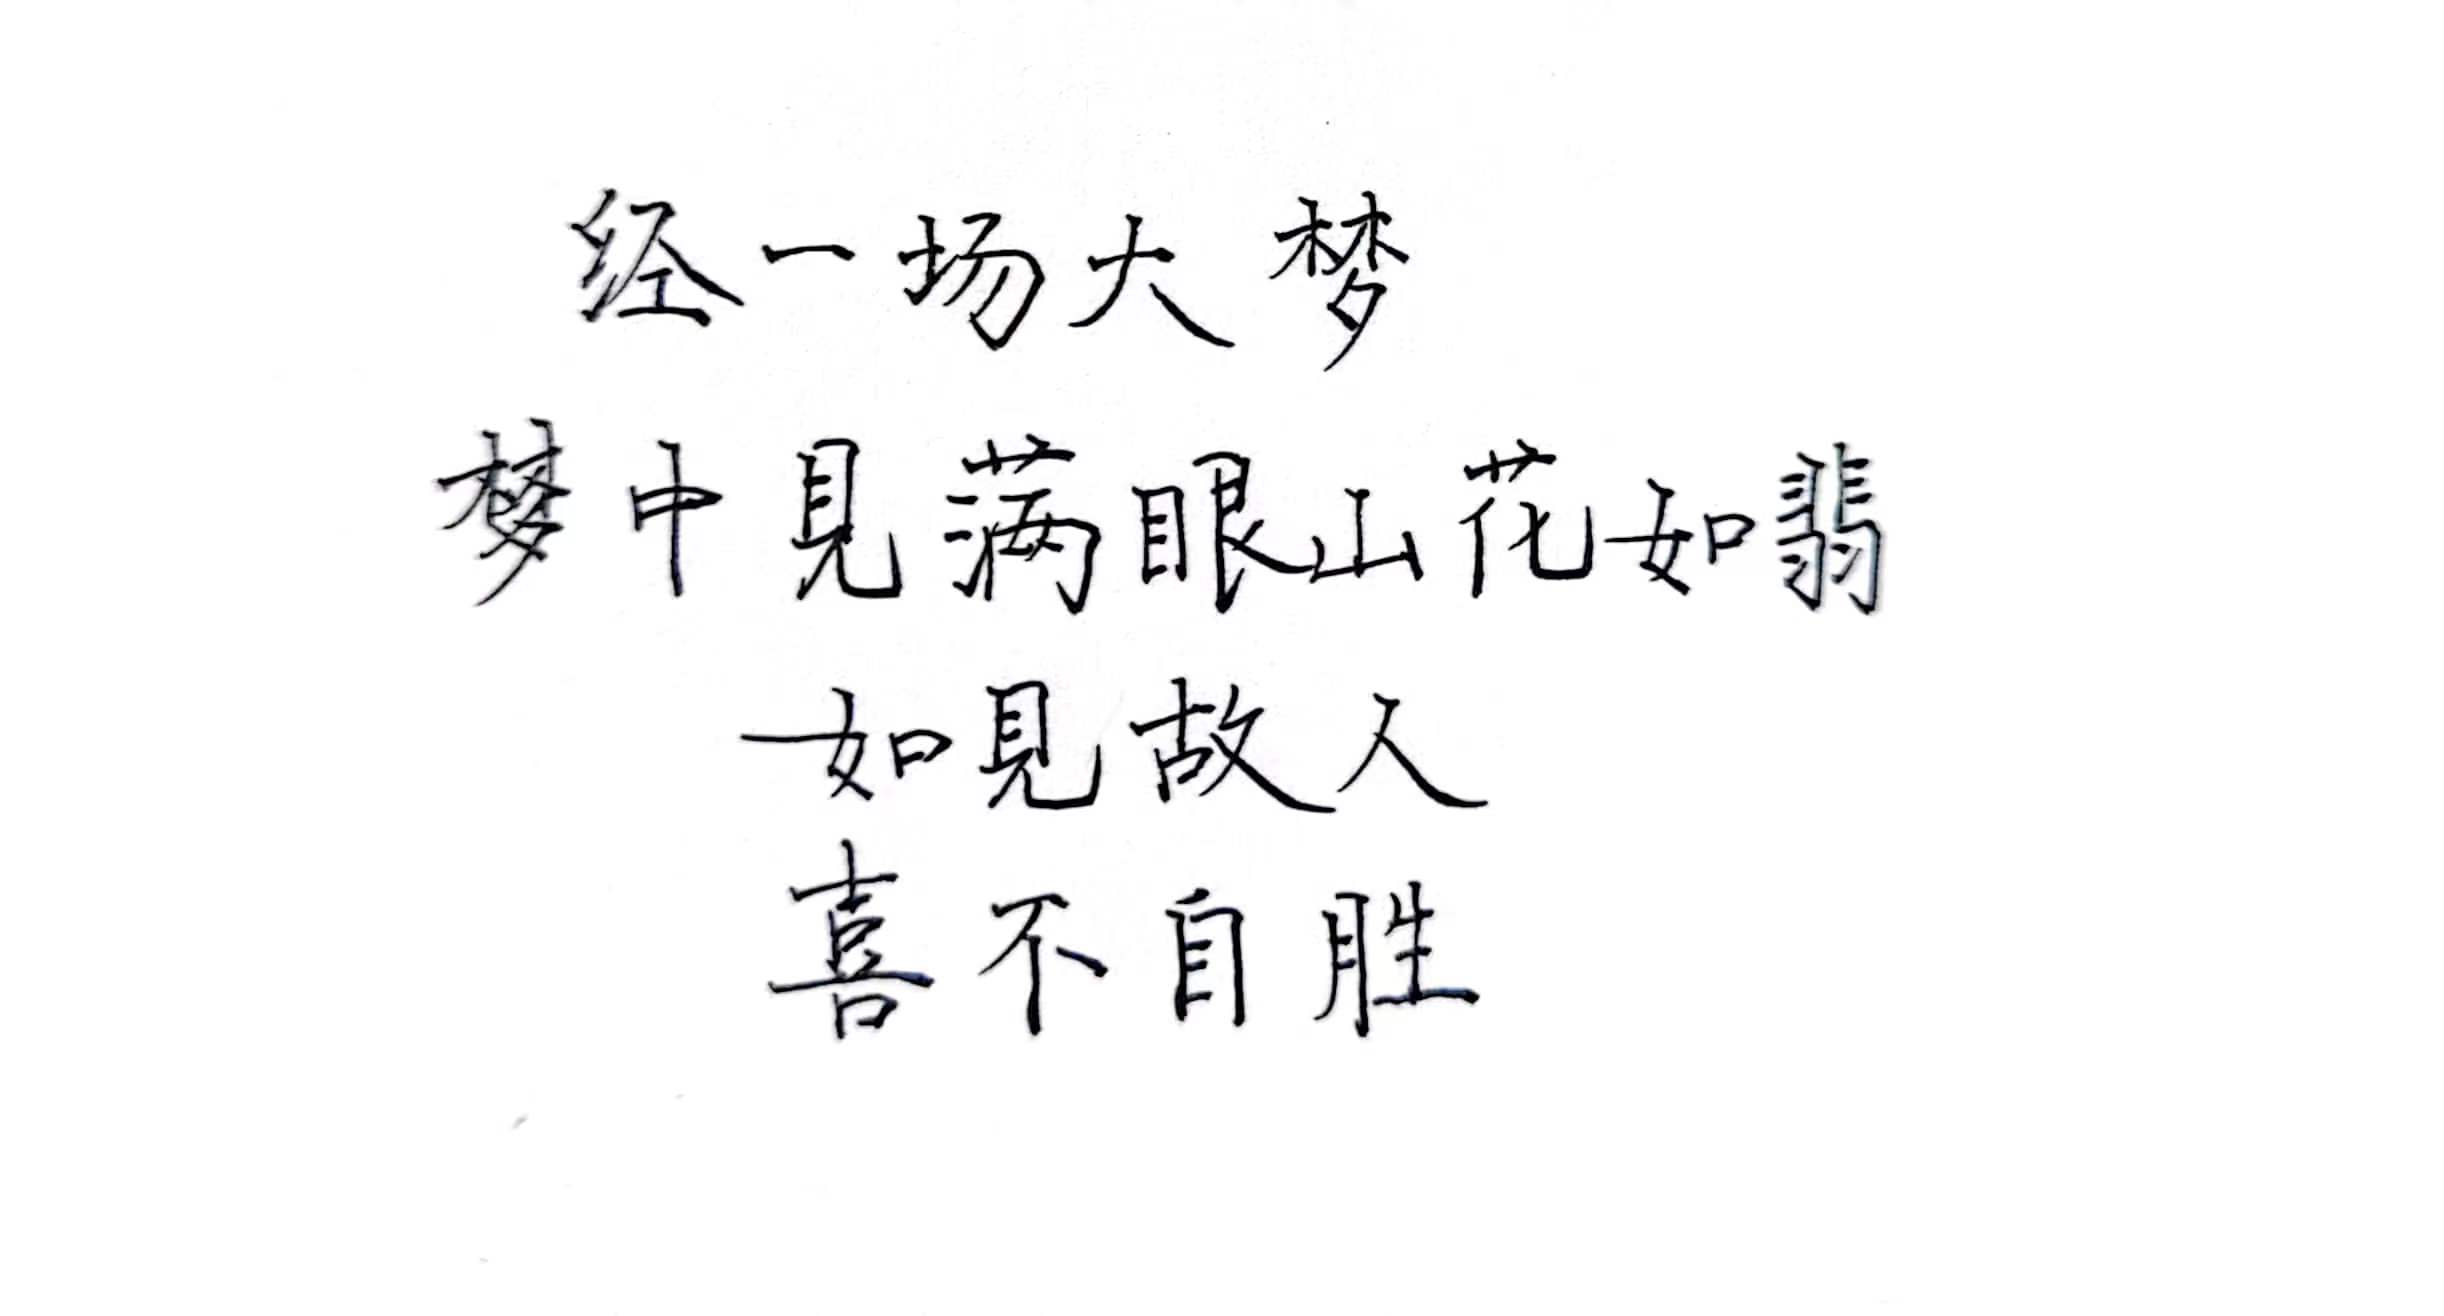 经一场大梦
梦中見满眼山花如翡
如見故人
喜不自胜